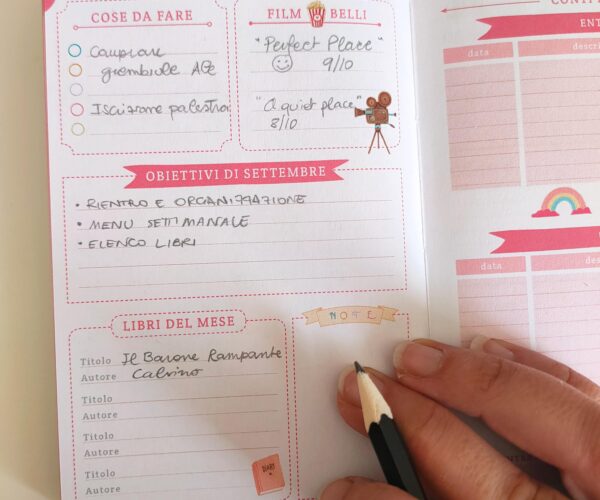 COSE DA FARE
Comprare
grembiule AGe
Iscrizione palestra
FILM BELLI
"Perfect Place"
9/10
"A quiet place"
8/10
OBIETTIVI DI SETTEMBRE
• RIENTRO E ORGANIZZAZIONE
• MENU SETTIMANALE
• ELENCO LIBRI
LIBRI DEL MESE
Titolo Il Barone Rampante
Autore Calvino
Titolo
Autore
Titolo
Autore
Titolo
Autore
DIARY
NOTE
ENT
data
descri
data
des